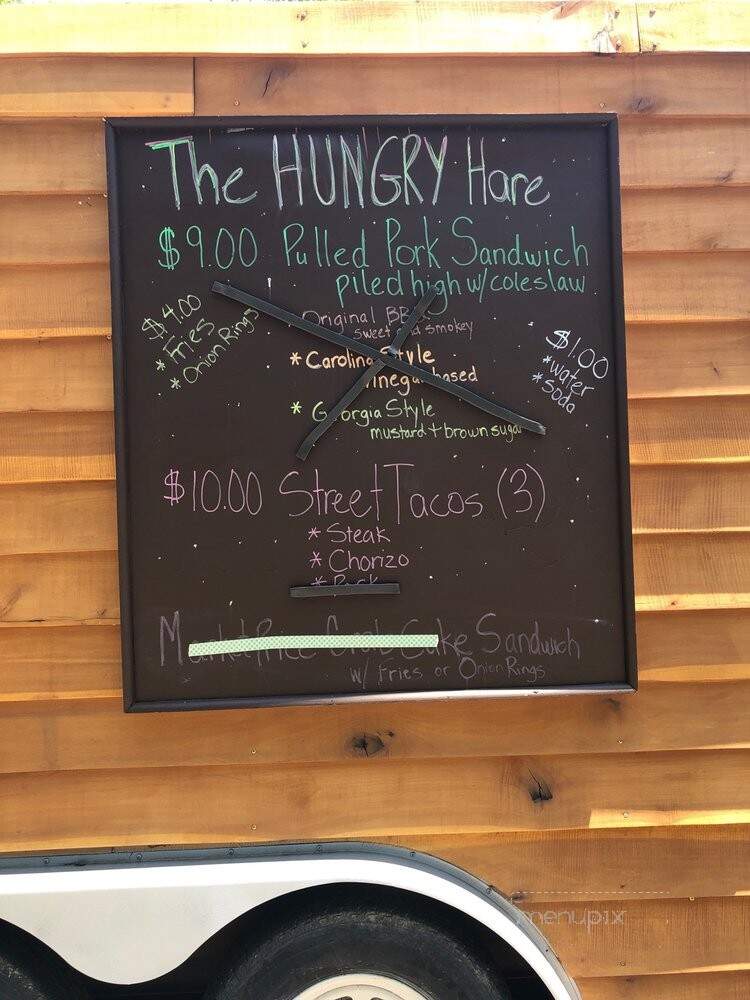 The HUNGRY Hare
$9.00 Pulled Pork Sandwich
piled high w/coleslaw
$4.00
* Fries
* Onion Rings
Original
sweet smokey
* Carolina Style
based
* Georgia Style
mustard + brown sugar
$1.00
*water
*soda
$10.00 Street Tacos (3)
* Steak
* Chorizo
* Pork
Market Price Crab Cake Sandwich
w/ Fries or Onion Rings
menupix